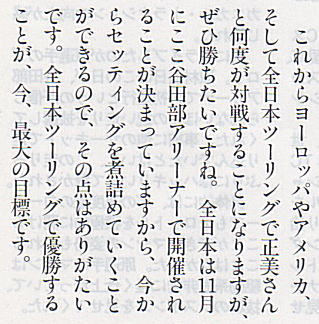 これからヨーロッパやアメリカ、
そして全日本ツーリングで正美さん
と何度が対戦することになりますが、
ぜひ勝ちたいですね。全日本は11月
にここ谷田部アリーナーで開催され
ることが決まっていますから、今か
らセッティングを煮詰めていくこと
ができるので、その点はありがたい
です。全日本ツーリングで優勝する
ことが、今、最大の目標です。